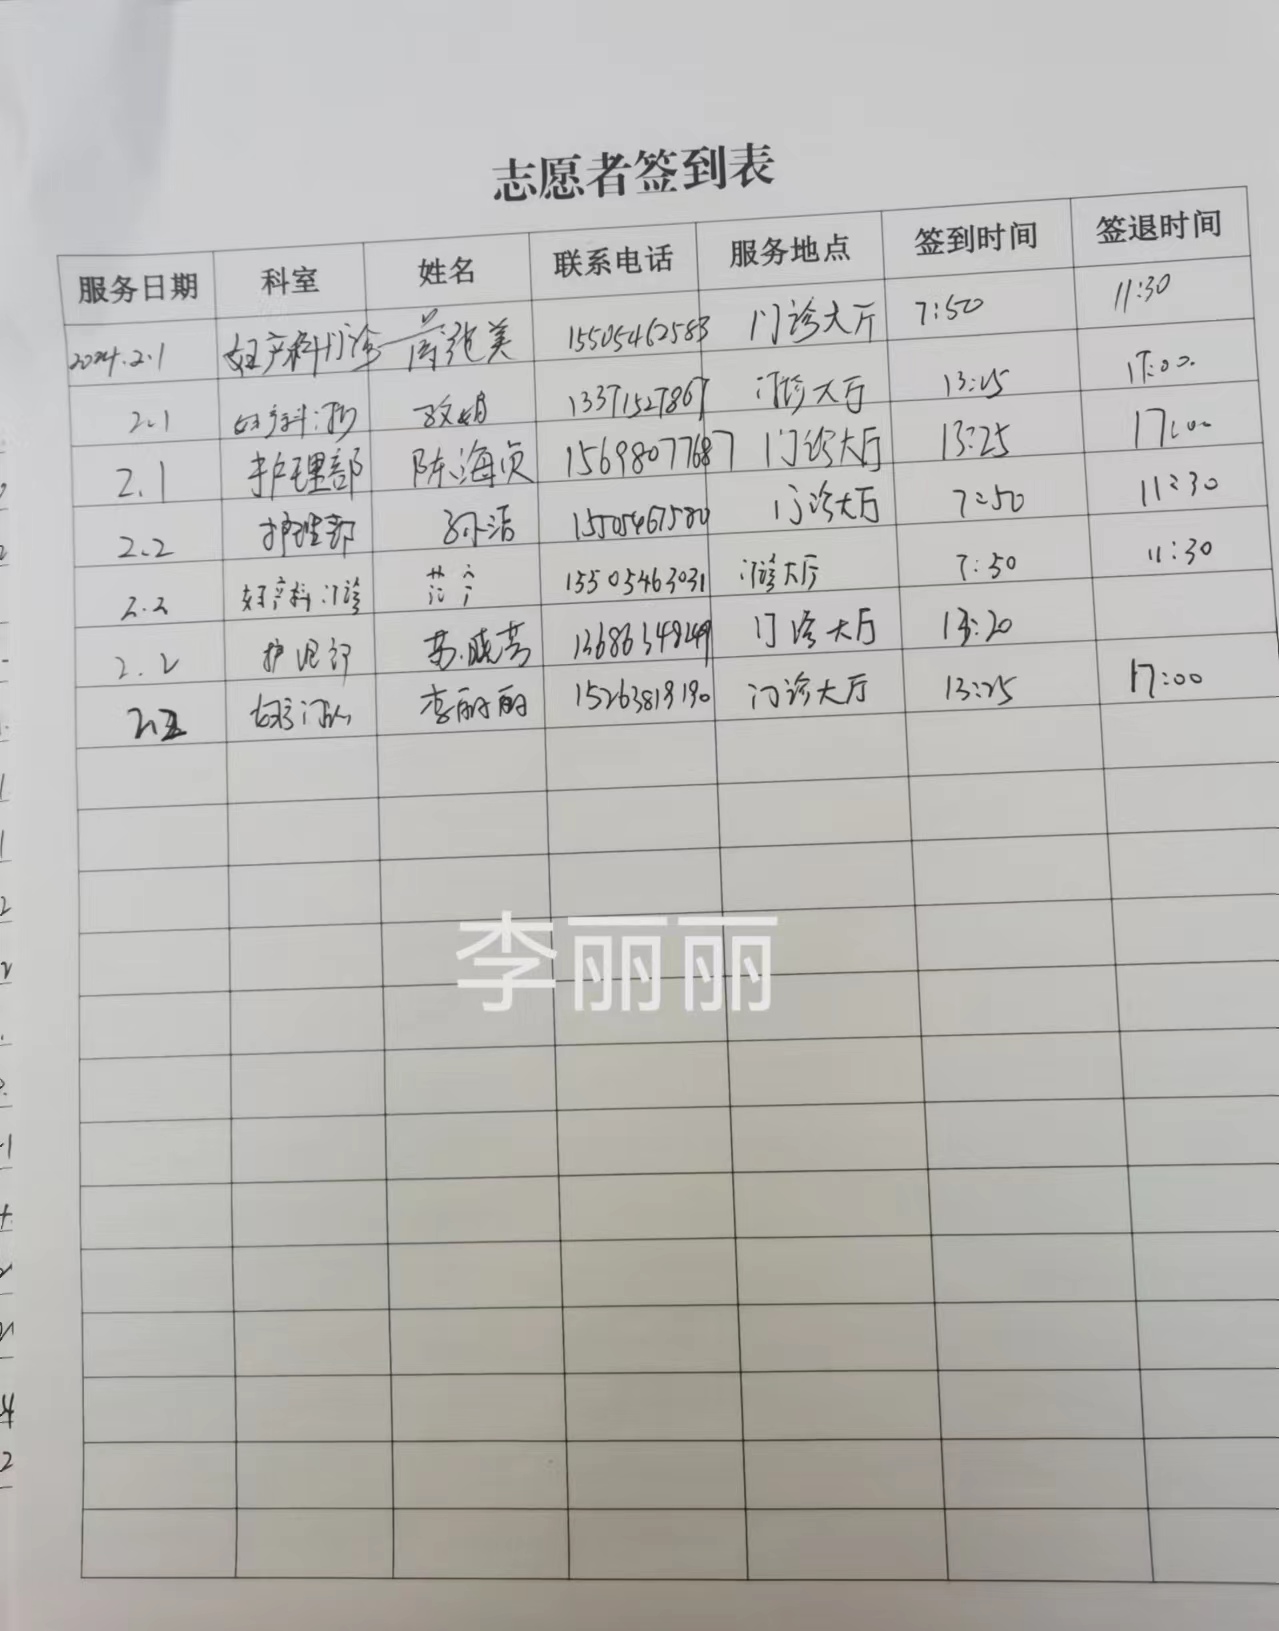 志愿者签到表
服务日期 科室 姓名 联系电话 服务地点 签到时间 签退时间
2024.2.1 妇产科门诊 美 15505462583 门诊大厅 7:50 11:30
2.1 13371527867 门诊大厅 13:25 17:00
2.1 护理部 陈海贞 15698077687 门诊大厅 13:25 17:00
2.2 护理部 孙洁 15505467580 门诊大厅 7:50 11:30
2.2 妇产科门诊 15505463031 门诊大厅 7:50 11:30
2.2 护理部 苏晓芳 门诊大厅 13:20
2.2 李丽丽 15263819190 门诊大厅 13:25 17:00
李丽丽